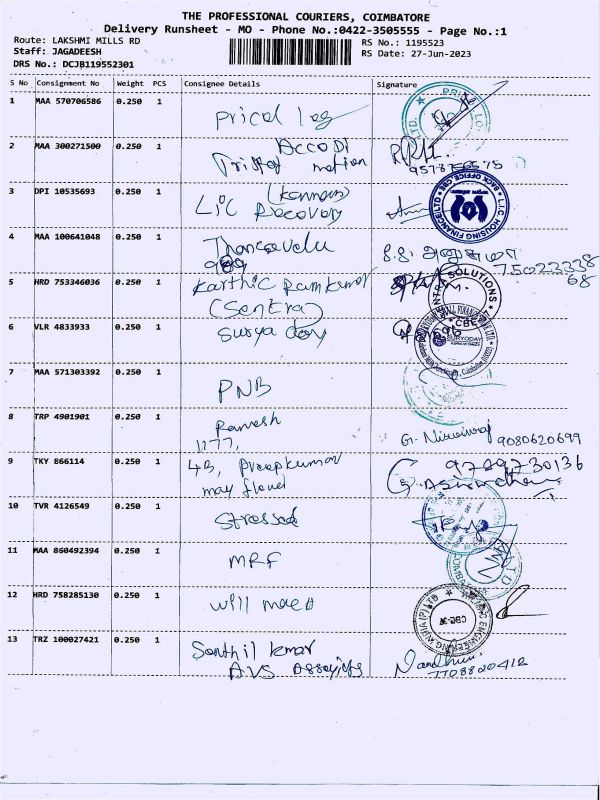 THE PROFESSIONAL COURIERS, COIMBATORE
Delivery Runsheet - MO - Phone No.:0422-3505555 - Page No.:1
Route: LAKSHMI MILLS RD
RS No.: 1195523
Staff: JAGADEESH
RS Date: 27-Jun-2023
DRS No.: DCJB119552301
S No Consignment No Weight PCS Consignee Details Signature
1 MAA 570706586 0.250 1
Pricol log
2 MAA 300271500 0.250 1 Accodi
motion
3 DPI 10535693 0.250 1 (Kannan)
LIC Recovery
L.I.C. HOUSING FINANCE LTD
BACK OFFICE CBE
4 MAA 100641048 0.250 1 Thangavelu
989
5 HRD 753346036 0.250 1 Karthic Ramkumar
(Sentra)
SOLUTIONS
6 VLR 4833933 0.250 1 Surya day
CBE
SURYODAY
7 MAA 571303392 0.250 1
PNB
8 TRP 4901901 0.250 1 Ramesh
1177,
G. 9080620699
9 TKY 866114 0.250 1 4B, Preepkumar
may flower
9789730136
10 TVR 4126549 0.250 1 Stressed
11 MAA 860492394 0.250 1
MRF
12 HRD 758285130 0.250 1
will maed
13 TRZ 100027421 0.250 1 Santhil kmar
AVS
Nandhini
7708820412